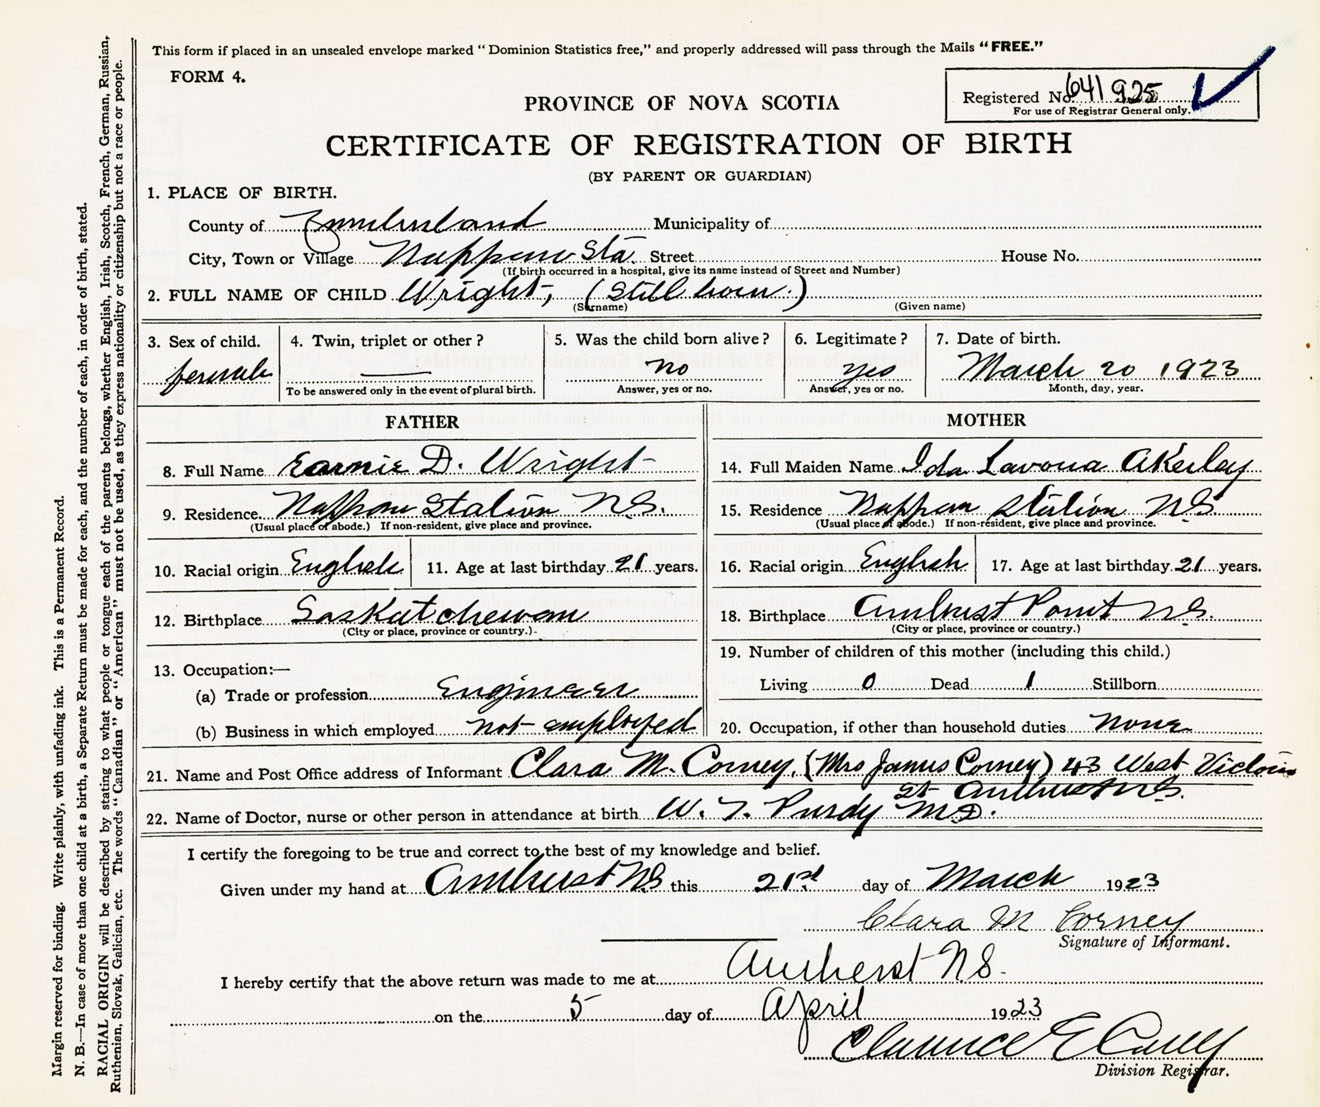 This form if placed in an unsealed envelope marked “Dominion Statistics free,” and properly addressed will pass through the Mails “FREE.”
FORM 4.
Registered No. 641925
For use of Registrar General only.
PROVINCE OF NOVA SCOTIA
CERTIFICATE OF REGISTRATION OF BIRTH
(BY PARENT OR GUARDIAN)
1. PLACE OF BIRTH.
County of Cumberland Municipality of
City, Town or Village Nappan Sta. Street House No.
(If birth occurred in a hospital, give its name instead of Street and Number)
2. FULL NAME OF CHILD Wright, (Still born.)
(Surname) (Given name)
3. Sex of child. 4. Twin, triplet or other? 5. Was the child born alive? 6. Legitimate? 7. Date of birth.
female — no yes March 20 1923
To be answered only in the event of plural birth. Answer, yes or no. Answer, yes or no. Month, day, year.
FATHER
8. Full Name Earnie D. Wright
9. Residence Nappan Station N.S.
(Usual place of abode.) If non-resident, give place and province.
10. Racial origin English 11. Age at last birthday 21 years.
12. Birthplace Saskatchewan
(City or place, province or country.)
13. Occupation:—
(a) Trade or profession Engineer
(b) Business in which employed not employed
MOTHER
14. Full Maiden Name Ida Lavona Akerley
15. Residence Nappan Station N.S
(Usual place of abode.) If non-resident, give place and province.
16. Racial origin English 17. Age at last birthday 21 years.
18. Birthplace Amherst Point N.S.
(City or place, province or country.)
19. Number of children of this mother (including this child.)
Living 0 Dead 1 Stillborn
20. Occupation, if other than household duties None
21. Name and Post Office address of Informant Clara M. Corney, (Mrs James Corney) 43 West Victoria
St Amherst N.S.
22. Name of Doctor, nurse or other person in attendance at birth W. T. Purdy M.D.
I certify the foregoing to be true and correct to the best of my knowledge and belief.
Given under my hand at Amherst NS this 21st day of March 1923
Clara M Corney
Signature of Informant.
I hereby certify that the above return was made to me at Amherst N.S.
on the 5 day of April 1923
Clarence E
Division Registrar.
Margin reserved for binding. Write plainly, with unfading ink. This is a Permanent Record.
N. B.—In case of more than one child at a birth, a Separate Return must be made for each, and the number of each, in order of birth, stated.
RACIAL ORIGIN will be described by stating to what people or tongue each of the parents belongs, whether English, Irish, Scotch, French, German, Russian,
Ruthenian, Slovak, Galician, etc. The words “Canadian” or “American” must not be used, as they express nationality or citizenship but not a race or people.